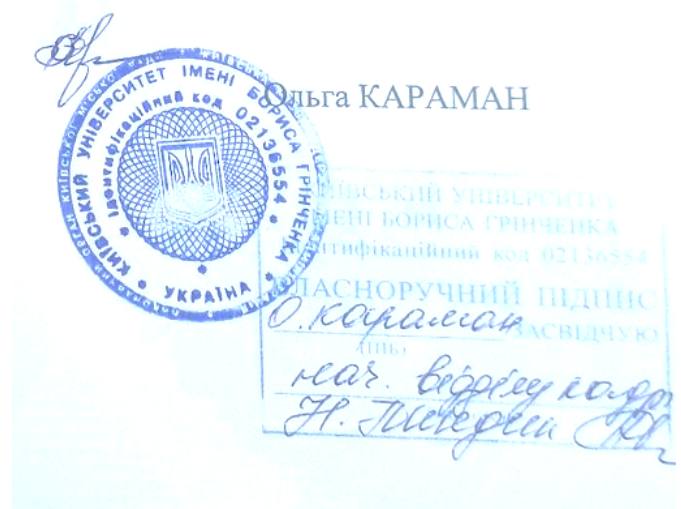 Ольга КАРАМАН
КИЇВСЬКИЙ УНІВЕРСИТЕТ ІМЕНІ БОРИСА ГРІНЧЕНКА
Ідентифікаційний код 02136554
УКРАЇНА
КИЇВСЬКИЙ УНІВЕРСИТЕТ
ІМЕНІ БОРИСА ГРІНЧЕНКА
Ідентифікаційний код 02136554
ВЛАСНОРУЧНИЙ ПІДПИС
О. Караман ЗАСВІДЧУЮ
(ПІБ)
нач. відділу кадрів
Н.